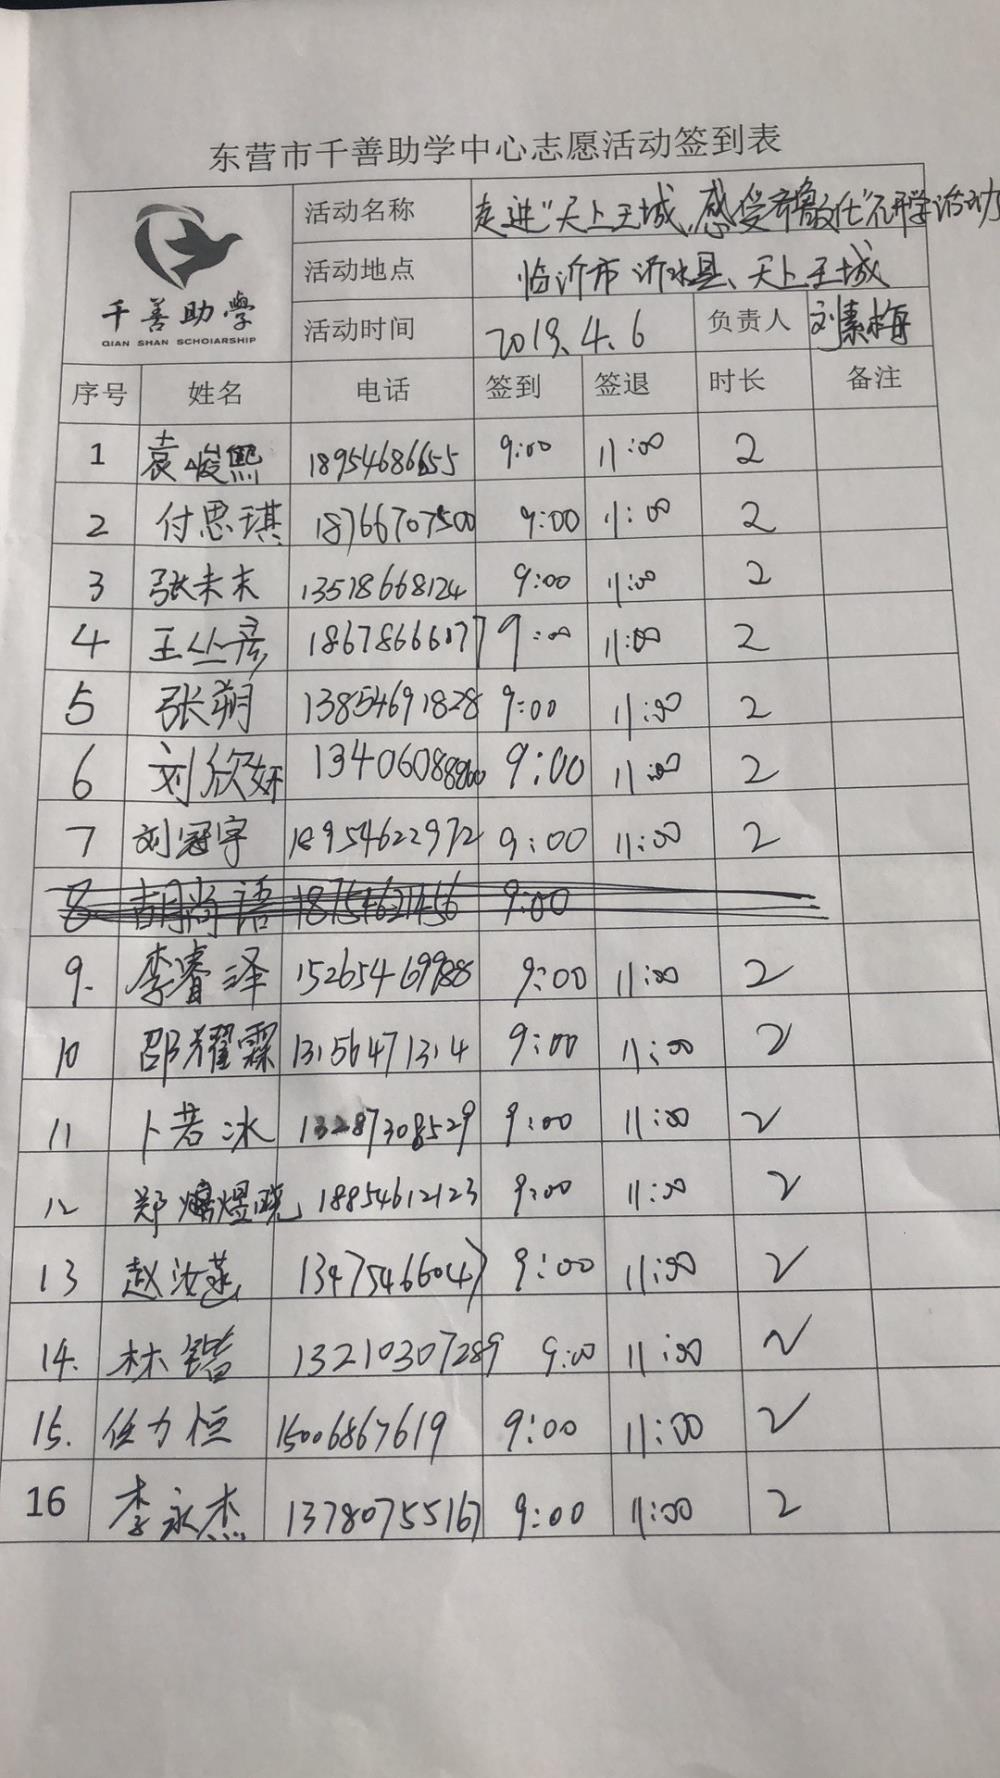 东营市千善助学中心志愿活动签到表
千善助學
QIAN SHAN SCHOlARSHIP
活动名称 走进"天上王城,感受齐鲁文化"研学活动
活动地点 临沂市沂水县、天上王城
活动时间 2019.4.6 负责人 刘素梅
序号 姓名 电话 签到 签退 时长 备注
1 袁峻熙 18954686655 9:00 11:00 2
2 付思琪 18766707500 9:00 11:00 2
3 张未末 13518668124 9:00 11:00 2
4 王丛彦 18678666177 9:00 11:00 2
5 张朔 13854691828 9:00 11:00 2
6 刘欣妍 9:00 11:00 2
7 刘冠宇 18954622972 9:00 11:00 2
8 胡尚语 18754621456 9:00
9. 李睿泽 15265469988 9:00 11:00 2
10 邵耀霖 13156471314 9:00 11:00 2
11 卜若冰 13287308529 9:00 11:00 2
12 郑煜晓 18854612123 9:00 11:00 2
13 赵汝燕 13475466047 9:00 11:00 2
14. 林锴 13210307289 9:00 11:00 2
15. 任力恒 15006867619 9:00 11:00 2
16 李永杰 13780755167 9:00 11:00 2